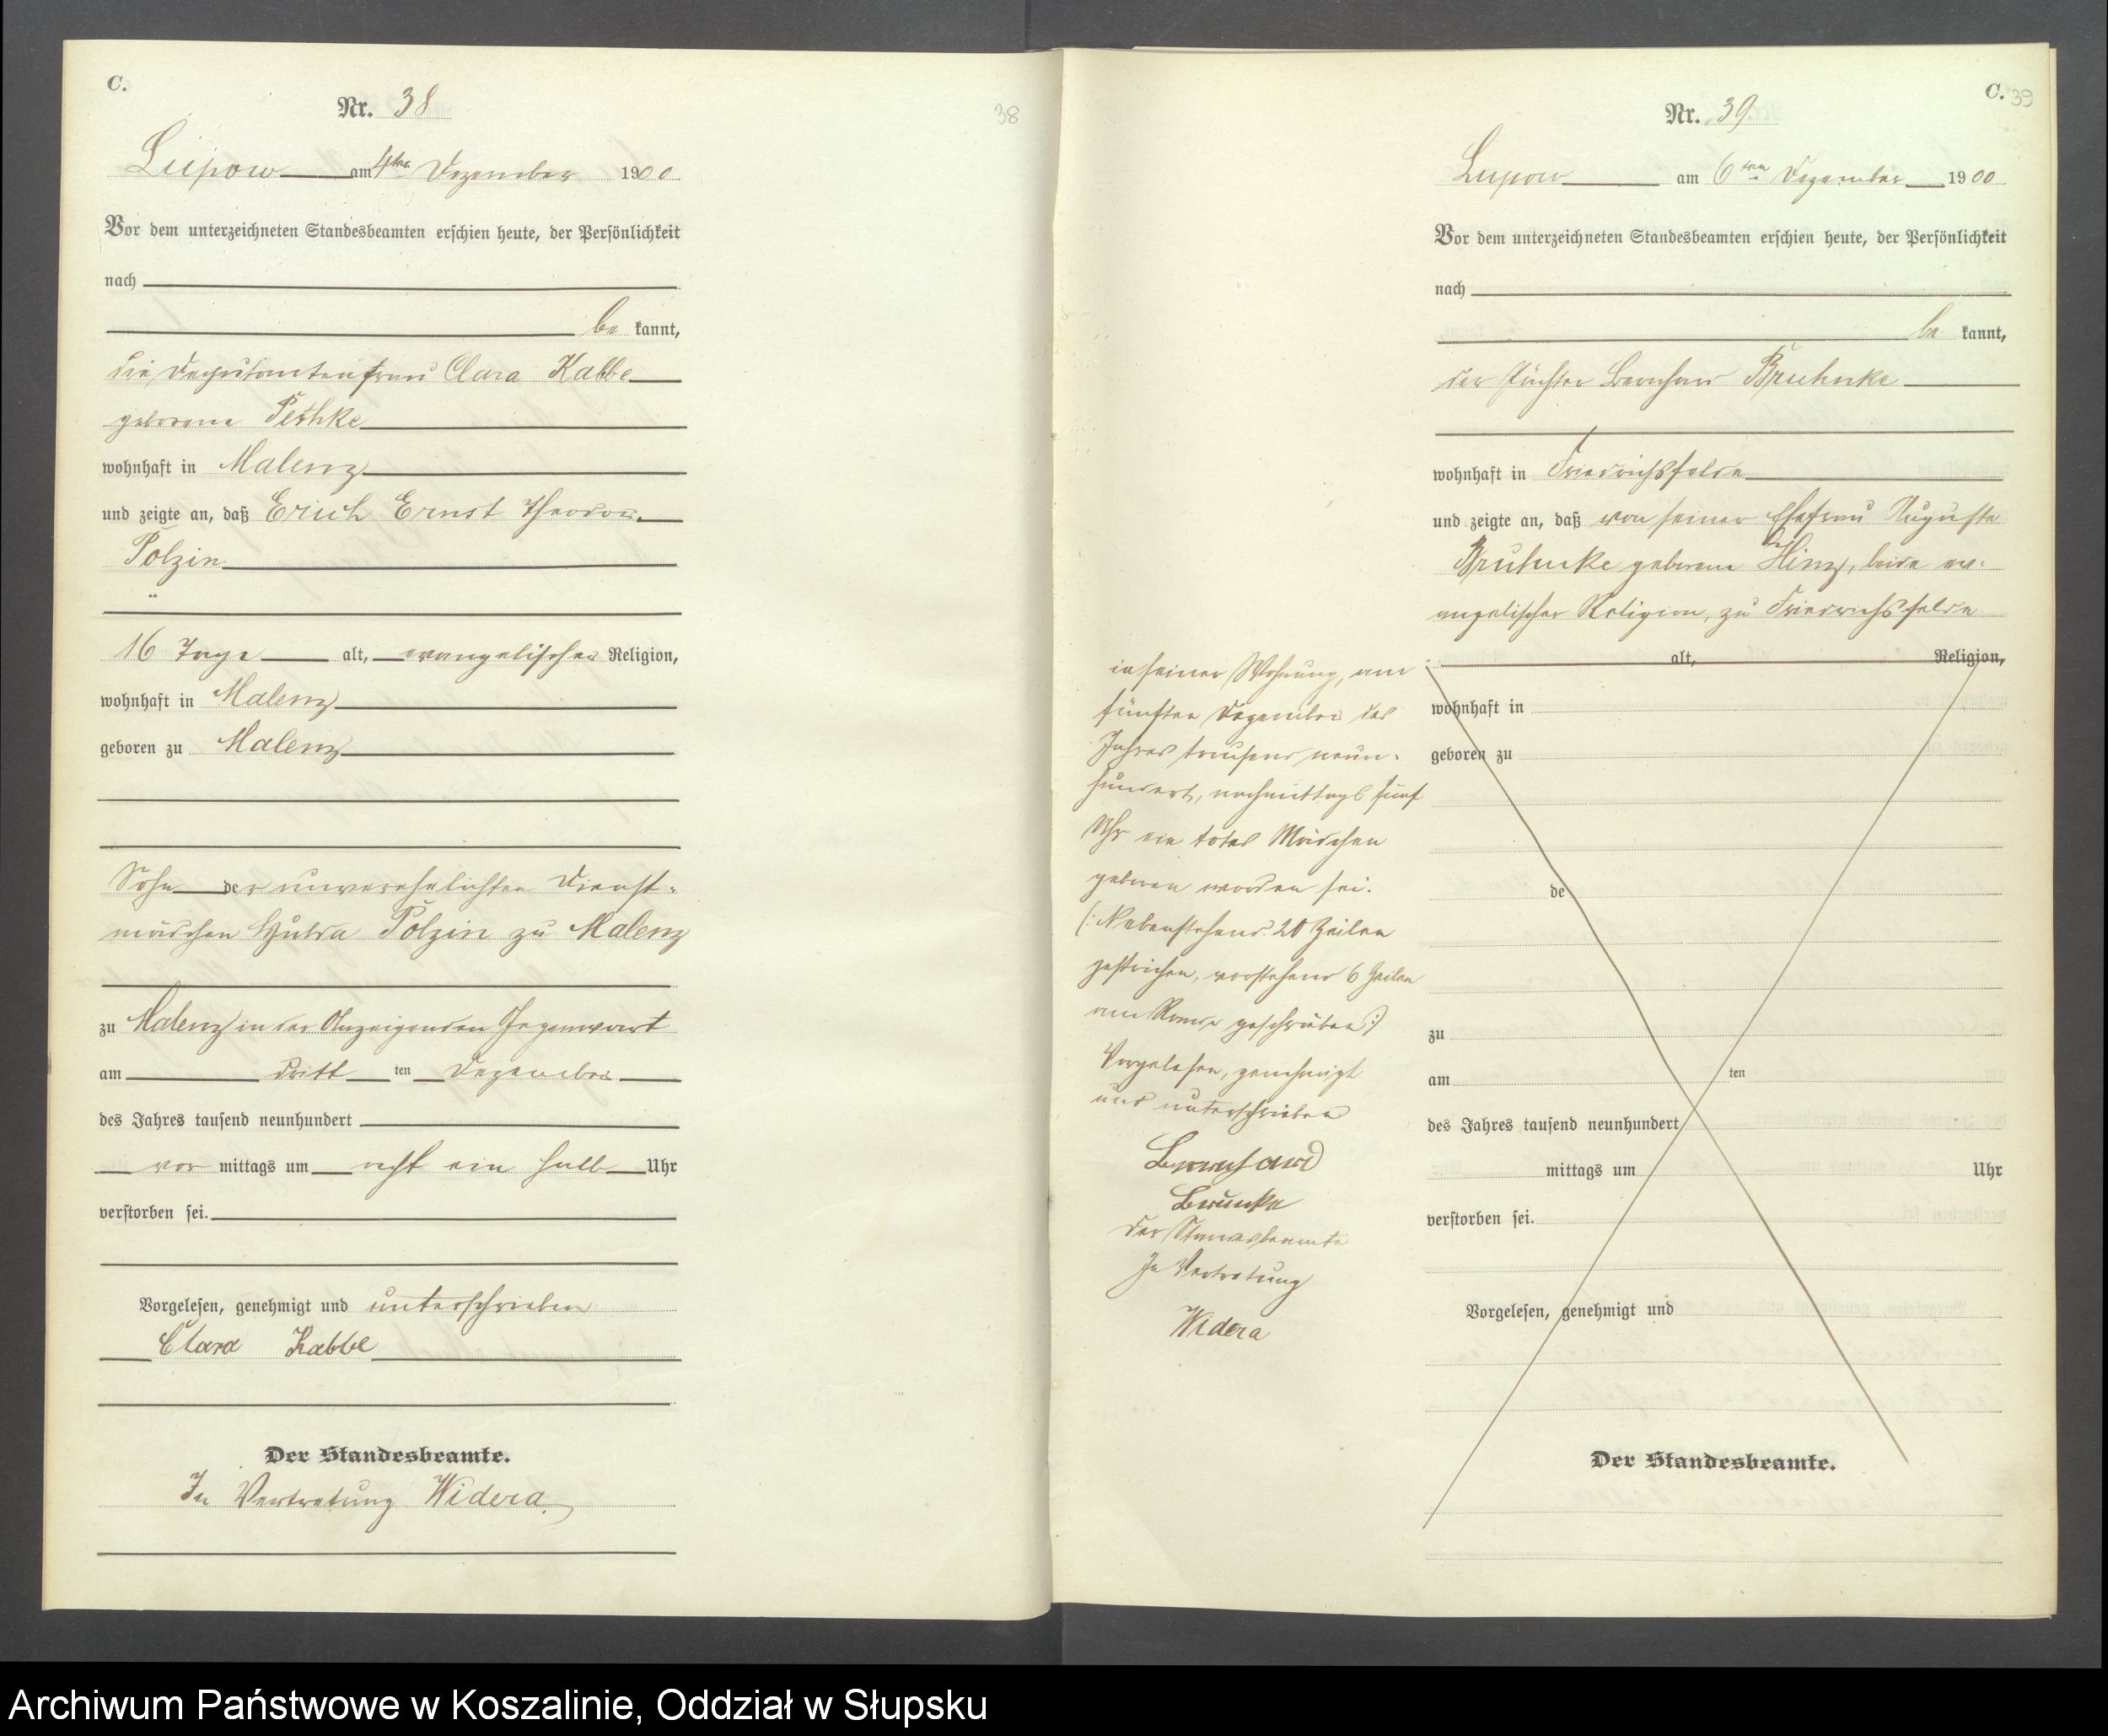 C.
Nr. 38
38
Lupow am 4ten Dezember 1900
Vor dem unterzeichneten Standesbeamten erschien heute, der Persönlichkeit
nach
be kannt,
die Deputantenfrau Clara Kabbe
geborene Peshke
wohnhaft in Malenz
und zeigte an, daß Erich Ernst Theodor
Polzin
16 Tage alt, evangelischer Religion,
wohnhaft in Malenz
geboren zu Malenz
Sohn der unverehelichten Dienst-
mädchen Hulda Polzin zu Malenz
zu Malenz in der Anzeigenden Gegenwart
am dritt ten Dezember
des Jahres tausend neunhundert
vor mittags um acht ein halb Uhr
verstorben sei.
Vorgelesen, genehmigt und unterschrieben
Clara Kabbe
Der Standesbeamte.
In Vertretung Widera
C. 39
Nr. 39
Lupow am 6ten Dezember 1900
Vor dem unterzeichneten Standesbeamten erschien heute, der Persönlichkeit
nach
be kannt,
der Pächter Bernhard Bruhnke
wohnhaft in Friedrichsfelde
und zeigte an, daß von seiner Ehefrau Auguste
Bruhnke geborene Hinz, beide ev-
angelischer Religion, zu Friedrichsfelde
in seiner Wohnung, am
fünften Dezember des
Jahres tausend neun-
hundert, nachmittags fünf
Uhr ein totes Mädchen
geboren worden sei.
(: Nebenstehend 20 Zeilen
gestrichen, vorstehend 6 Zeilen
am Rande geschrieben :)
Vorgelesen, genehmigt
und unterschrieben
Bernhard
Brunke
Der Standesbeamte
In Vertretung
Widera
alt, Religion,
wohnhaft in
geboren zu
de
zu
am ten
des Jahres tausend neunhundert
mittags um Uhr
verstorben sei.
Vorgelesen, genehmigt und
Der Standesbeamte.
Archiwum Państwowe w Koszalinie, Oddział w Słupsku